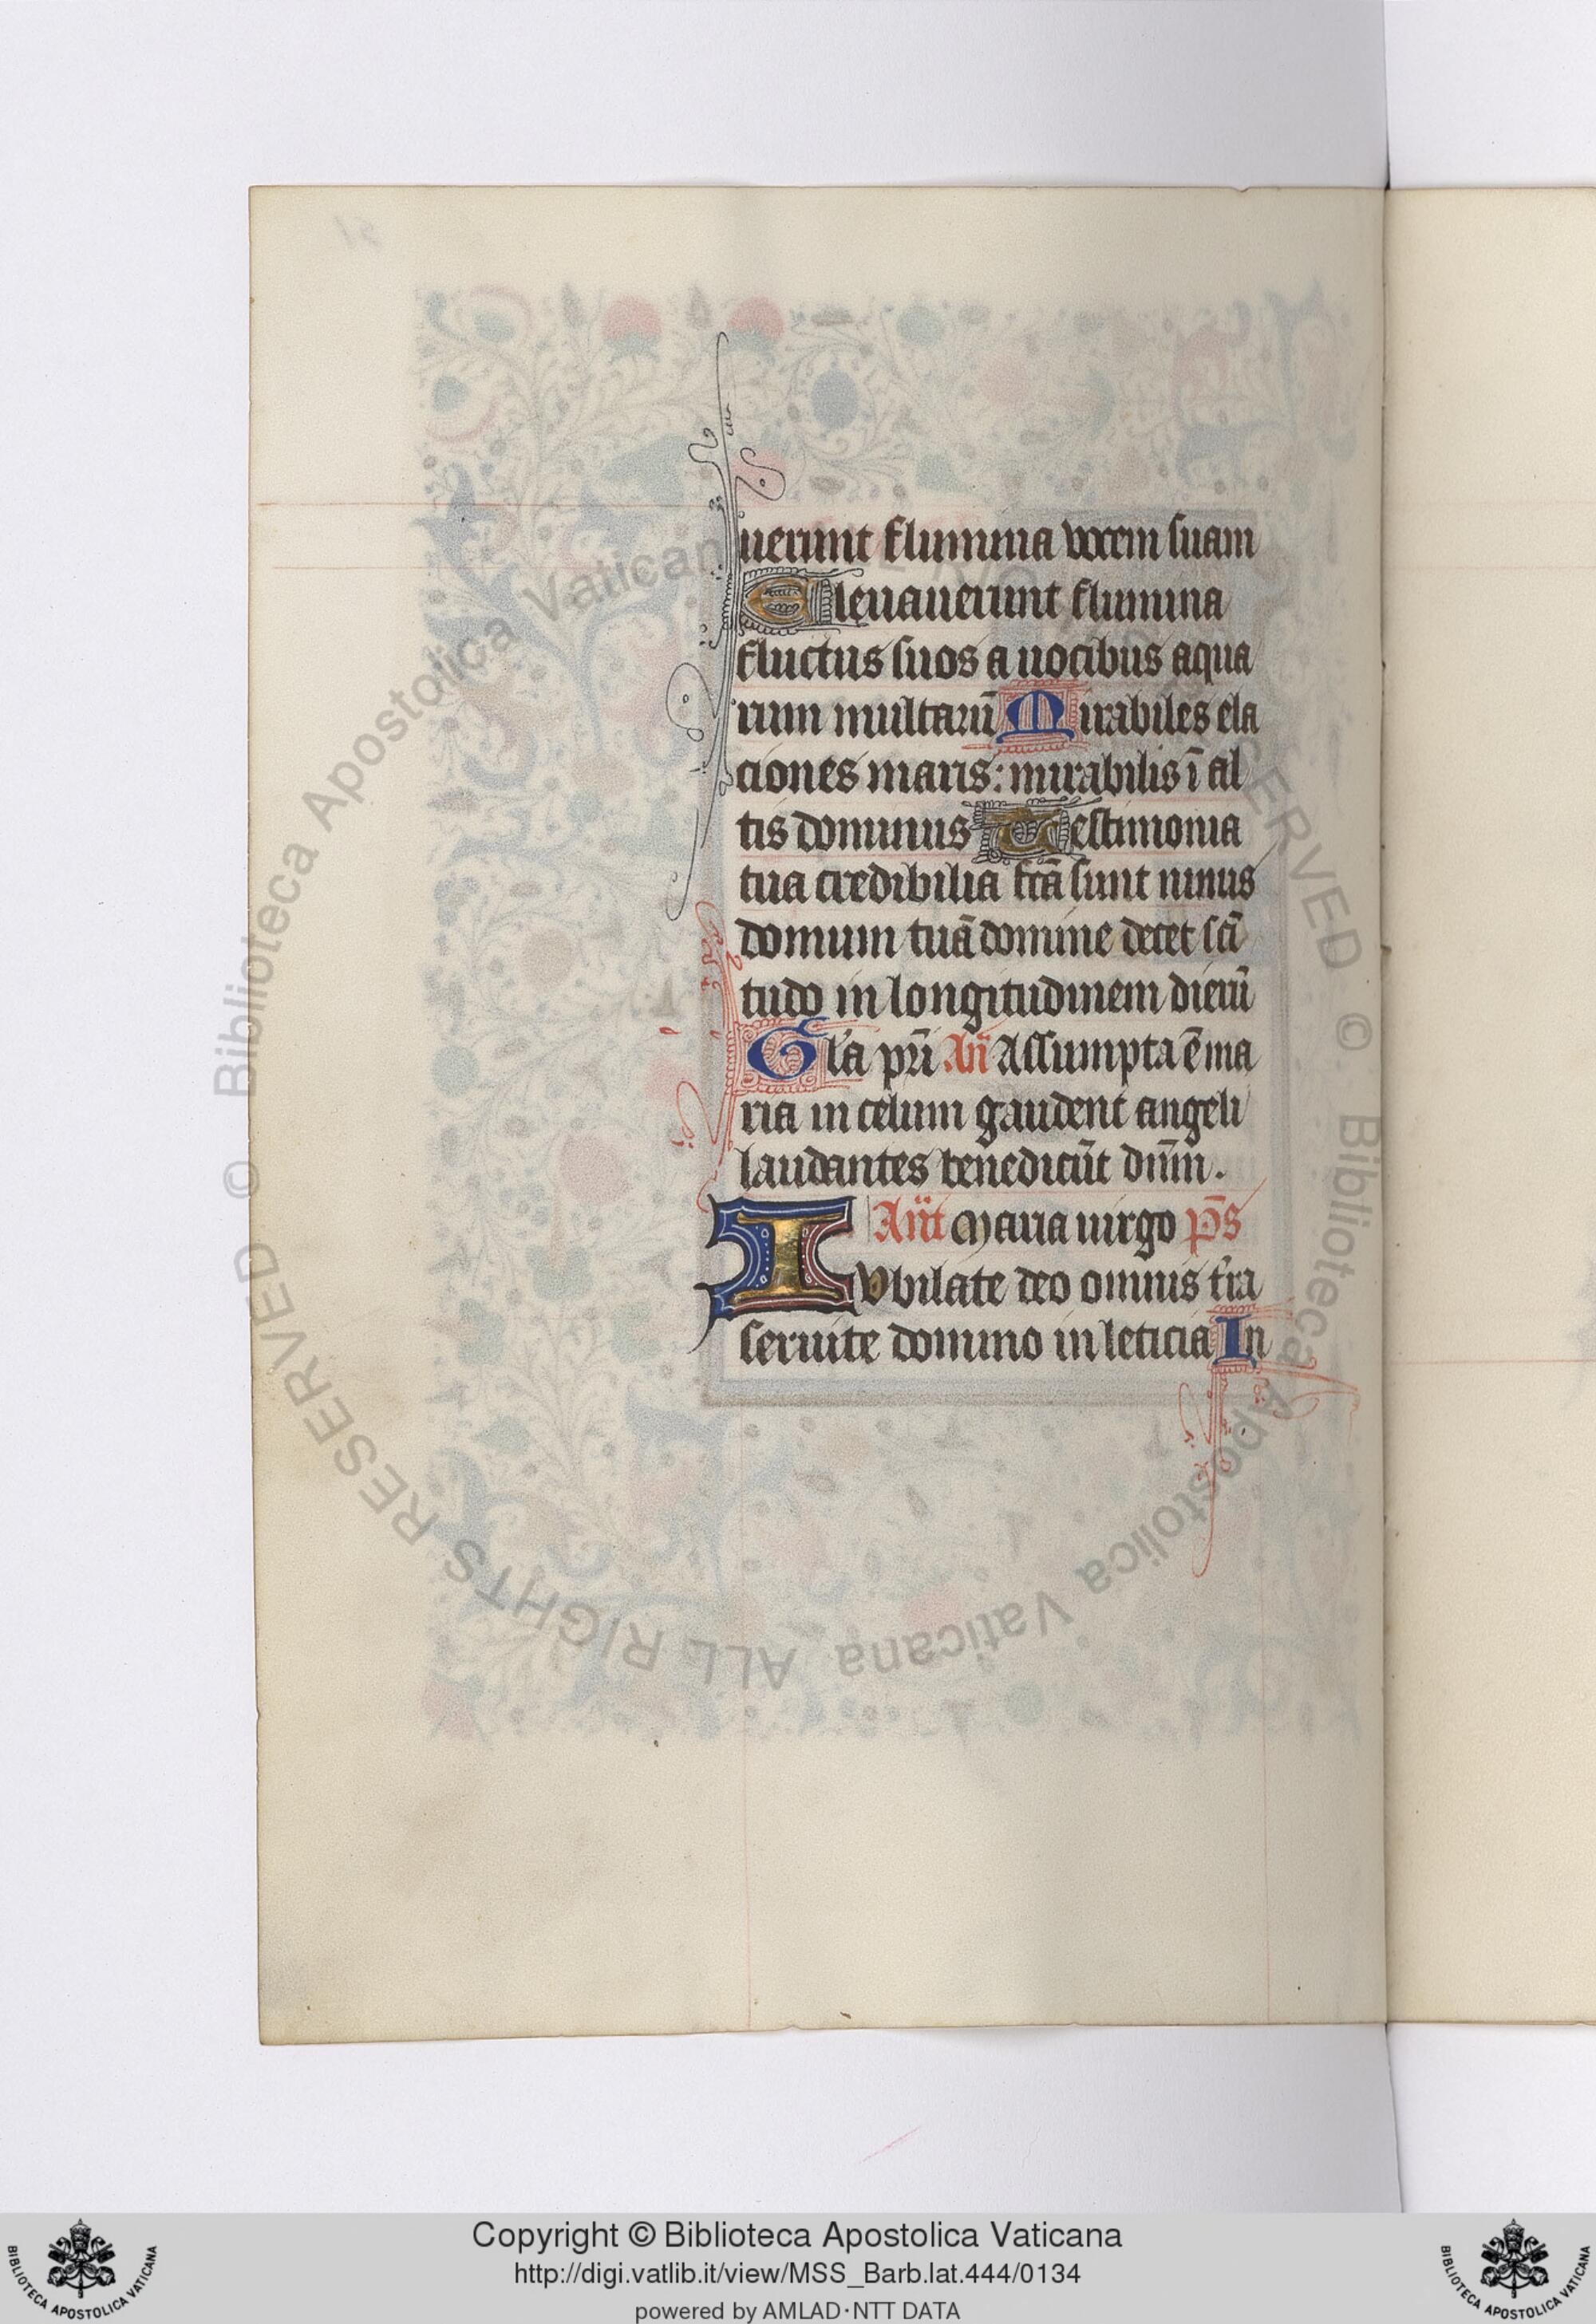 uerunt flumina vocem suam
Eleuauerunt flumina
fluctus suos a uocibus aqua
rum multarū Mirabiles ela
ciones maris: mirabilis ī al
tis dominus Testimonia
tua credibilia fcā sunt nimis
domum tuā domine decet scī
tudo in longitudinem dierū
Gla pri An Assumpta ē ma
ria in celum gaudent angeli
laudantes benedicūt dnm̄.
Ant Maria uirgo ps
Iubilate deo omnis tra
seruite domino in leticia In
© Biblioteca Apostolica Vaticana ALL RIGHTS RESERVED
Copyright © Biblioteca Apostolica Vaticana
http://digi.vatlib.it/view/MSS_Barb.lat.444/0134
powered by AMLAD·NTT DATA
BIBLIOTECA APOSTOLICA VATICANA
BIBLIOTECA APOSTOLICA VATICANA